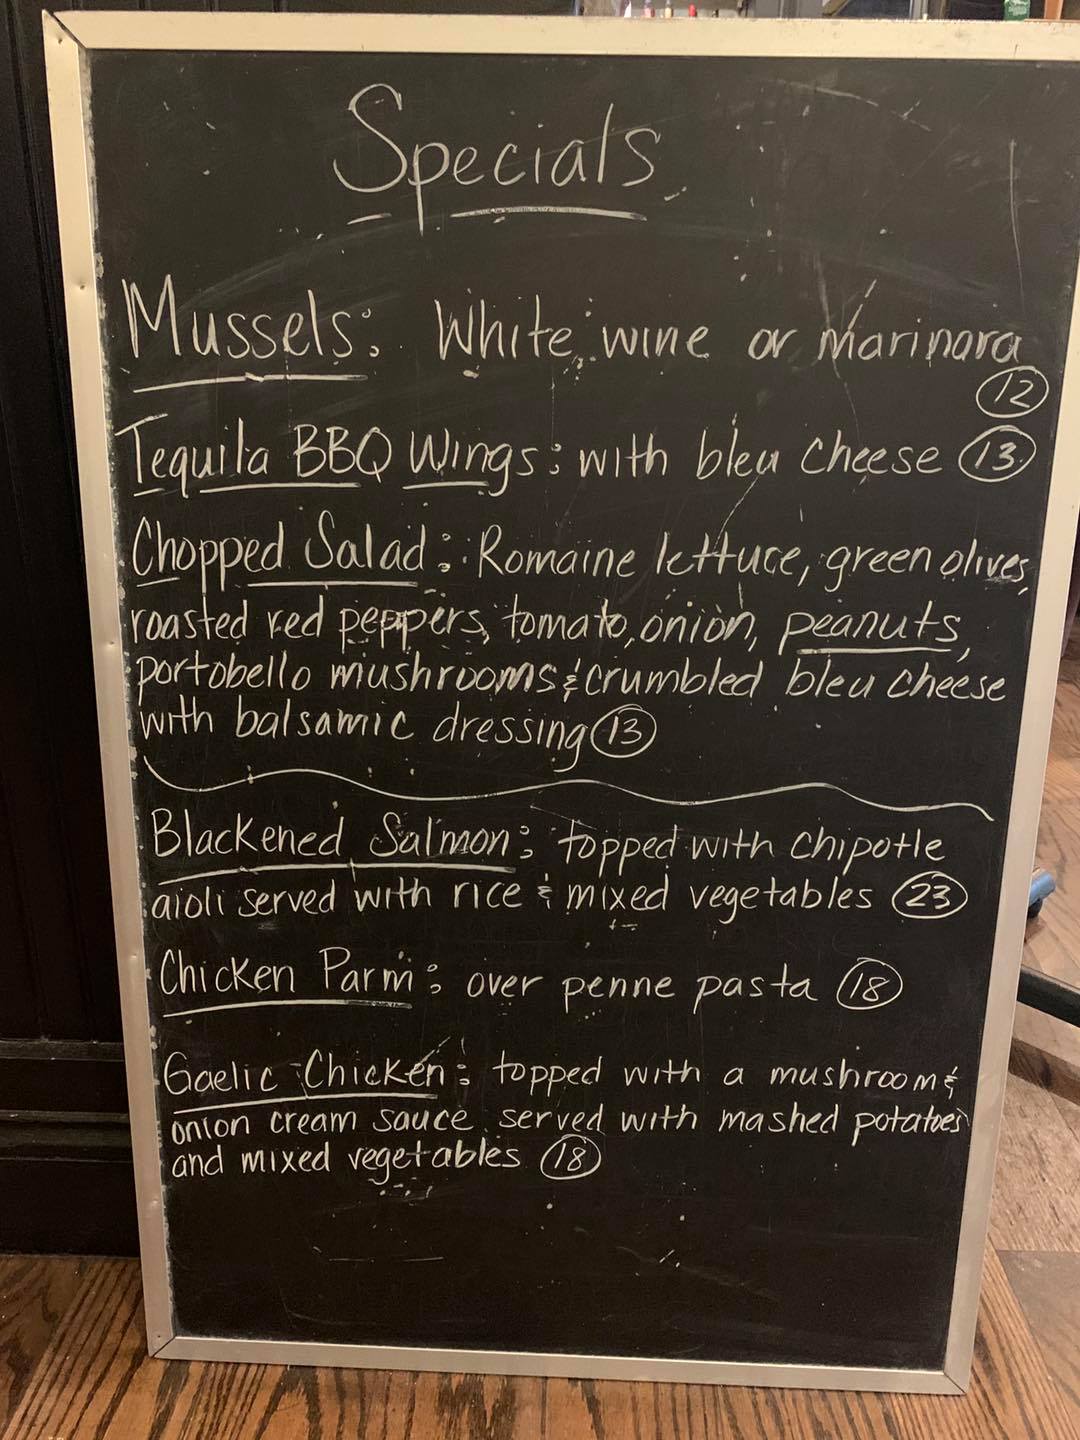 Specials
Mussels: White wine or marinara
12
Tequila BBQ Wings: with bleu cheese 13
Chopped Salad: Romaine lettuce, green olives,
roasted red peppers, tomato, onion, peanuts,
portobello mushrooms & crumbled bleu cheese
with balsamic dressing 13
Blackened Salmon: topped with chipotle
aioli served with rice & mixed vegetables 23
Chicken Parm: over penne pasta 18
Gaelic Chicken: topped with a mushroom &
onion cream sauce served with mashed potatoes
and mixed vegetables 18